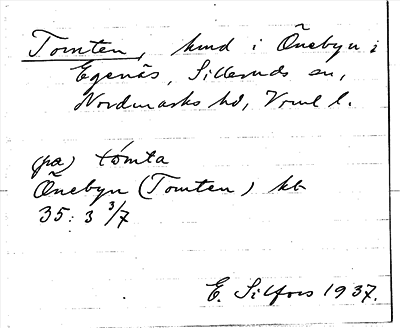 Tomten, hmd i Önebyn i
Egenäs, Silleruds sn,
Nordmarks hd, Vrml l.
(på) tómta
Önebyn (Tomten) kb
35: 3 3/7
E. Silfors 1937.